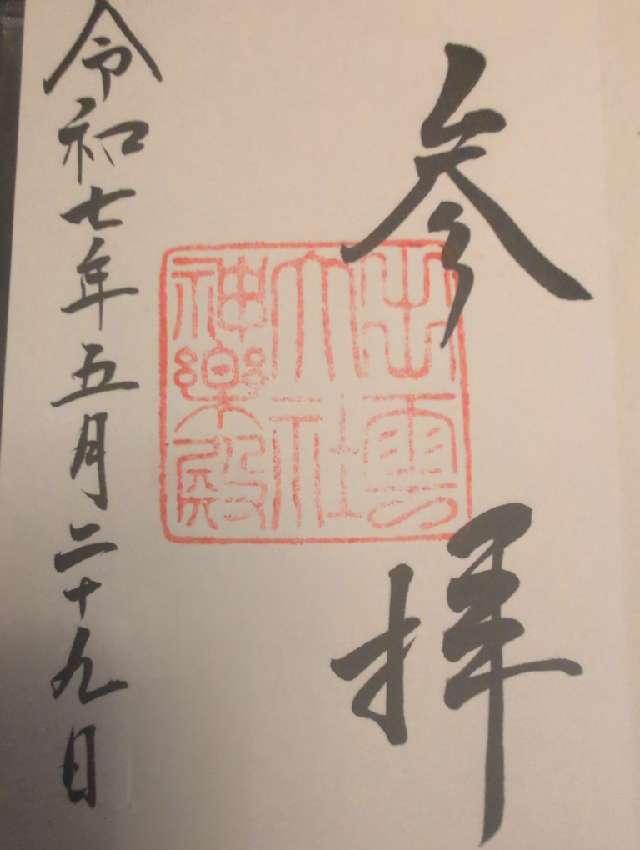 参拝
出雲
大社
神楽殿
令和七年五月二十九日